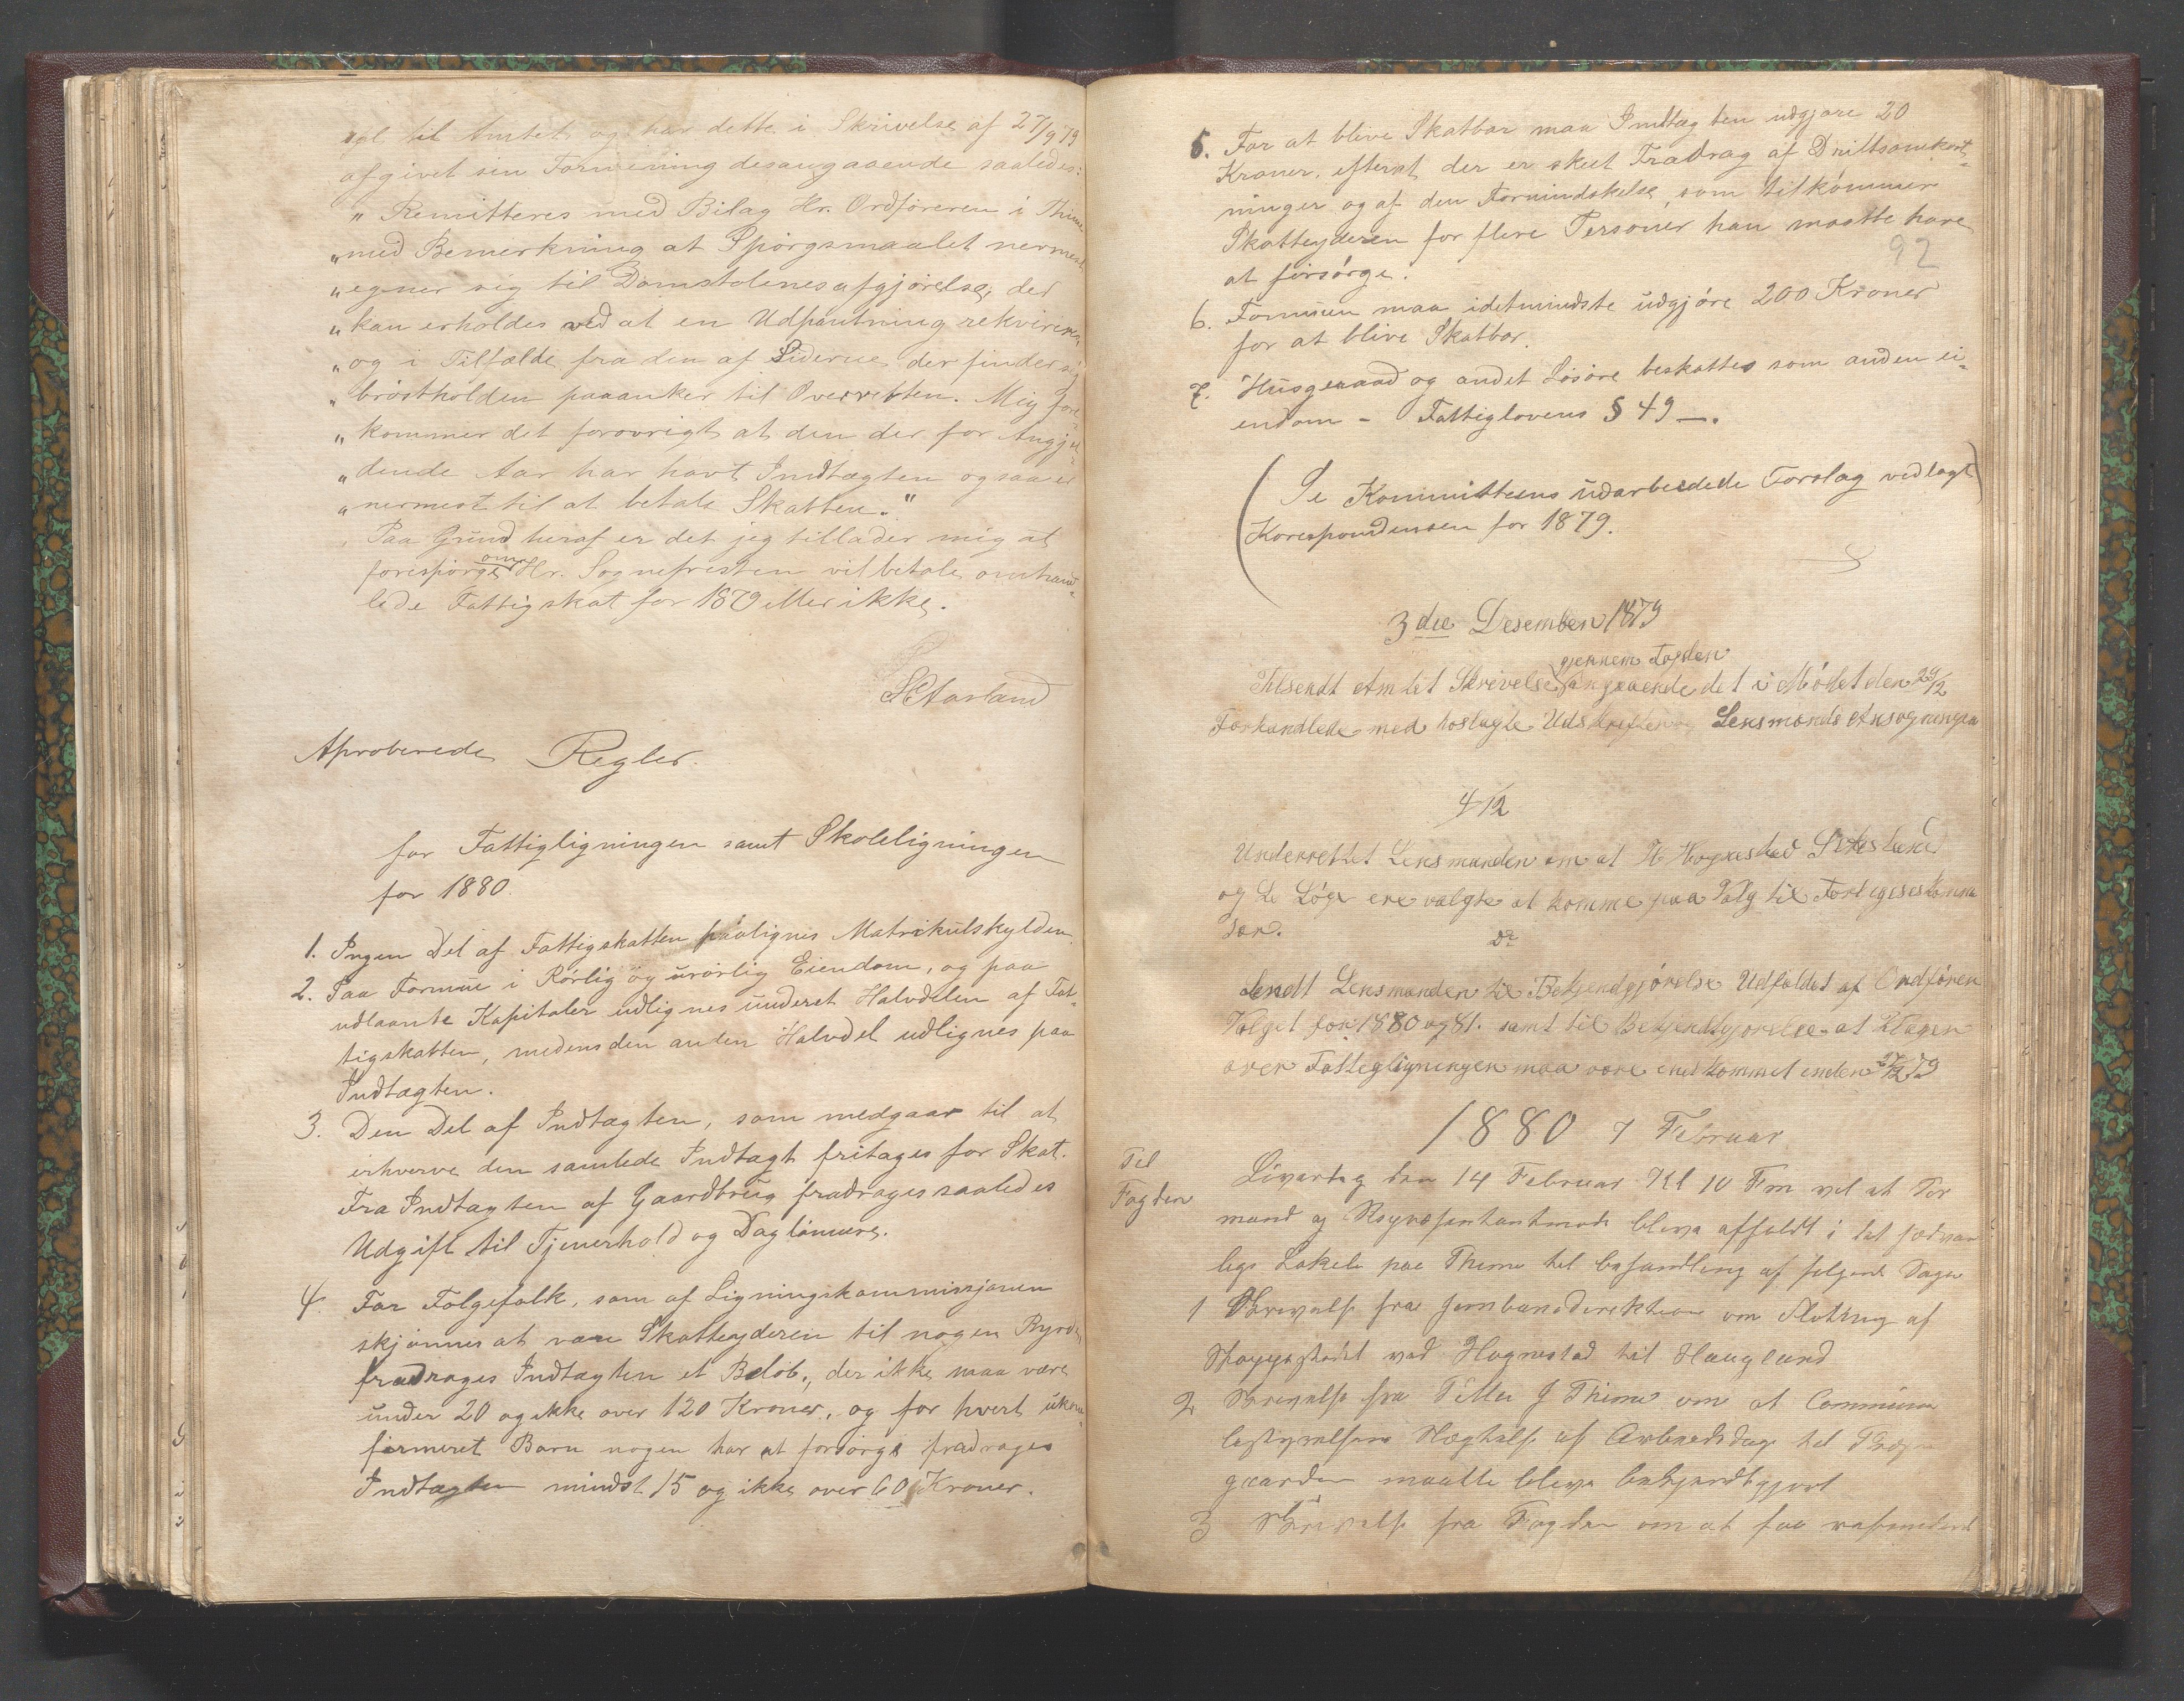 til Amtet og har dette i Skrivelse af 27/9 79
afgivet sin Formening desangaaende saaledes:
" Remitteres med Bilag Hr. Ordføreren i Thime
" med Bemerkning at Spørgsmaalet nermest
" egner sig til Domstolenes afgjørelse, der
" kan erholdes ved at en Udpantning rekvireres
" og i Tilfælde fra den af Siderne der finder si
" brøstholden paaanker til Overretten. Mig fore
" kommer det forøvrigt at den der for Angjel-
" dende Aar har havt Indtægten ogsaa er
" nermest til at betale Skatten."
Paa Grund heraf er det jeg tillader mig at
forespørge om Hr. Sognepresten vil betale omhand-
lede Fattigskat for 1879 eller ikke.
Aarland
Aproberede Regler.
for Fattigligningen samt Skoleligningen
for 1880.
1. Ingen Del af Fattigskatten paalignes Matrikulskylden.
2. Paa Formue i Rørlig og urørlig Eiendom, og paa
udlaante Kapitaler udlignes underet Halvdelen af Fat-
tigskatten, medens den anden Halvdel udlignes paa
Indtægten.
3. Den Del af Indtægten, som medgaar til at
erhverve den samlede Indtægt fritages for Skat.
Fra Indtægten af Gaardbrug fradrages saaledes
Udgift til Tjenerhold og Daglønnere.
4. For Følgefolk, som af Ligningskommissjonen
skjønnes at være Skatteyderen til nogen Byrde
fradrages Indtægten et Beløb, der ikke maa være
under 20 og ikke over 120 Kroner, og for hvert ukon-
firmeret Barn nogen har at forsørge fradrages
Indtægten mindst 15 og ikke over 60 Kroner.
92
5. For at blive Skatbar maa Indtægten udgjøre 20
Kroner, efterat der er skeet Fradrag af Driftsomkost-
ninger og af den Formindskelse, som tilkommer
Skatteyderen for flere Personer han maatte have
at forsørge.
6. Formuen maa idetmindste udgjøre 200 Kroner
for at blive Skatbar.
7. Husgeraad og andet Løsøre beskattes som anden ei-
endom - Fattiglovens § 49 —.
(Se Kommitteens udarbeidede Forslag vedlagt
Korespondensen for 1879.)
3die Desember 1879
Tilsendt Amtet Skrivelse gjennem Fogden angaaende det i Mødet den
Forhandlede med hoslagte Udskrifter og Lensmands Ansøgninga
4/12
Underrettet Lensmanden om at H Hognestad
og L Løge ere valgte at komme paa Valg til Forligelseskomma
sær.
D°
Sendt Lensmanden til Bekjendtgjørelse Udfaldet af Ordfører
Valget for 1880 og 81. samt til Bekjendtgjørelse at Klager
over Fattigligningen maa være indkommet inden 27/12 79
1880 7 Februar
Til
Fogden
Løvertag den 14 Februar Kl 10 Fm vil at For
mand og Repræsentantmøde blive affoldt i det sædvan
lige Lokale paa Thime til behandling af følgende Sager
1 Skrivelse fra Jernbanedirektion om Flotning af
Stoppestedet ved Hognestad til Hauglund
2 Skrivelse fra Thime om at Commune
bestyrelsens af Arbeidsdage til
gaarden maatte blive bekjendtgjort
3 Skrivelse fra Fogden om at faa